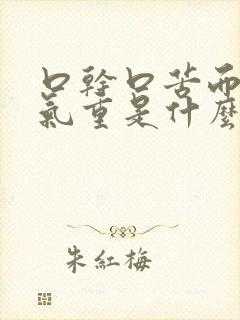 口幹口苦而
氣重是什麼
朱紅梅